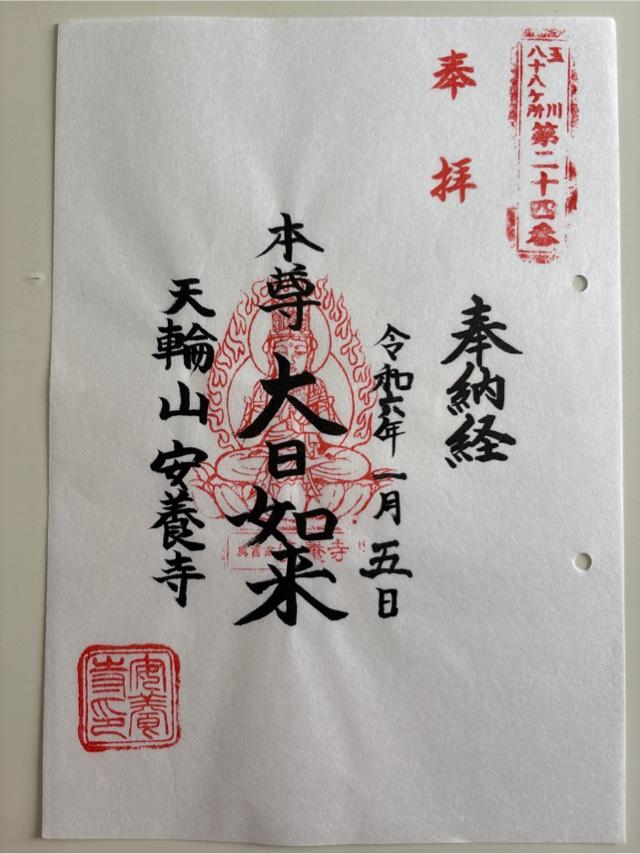 玉川
八十八ケ所
第二十四番
奉拝
奉納経
令和六年一月五日
本尊
大日如来
天輪山安養寺
安養寺印